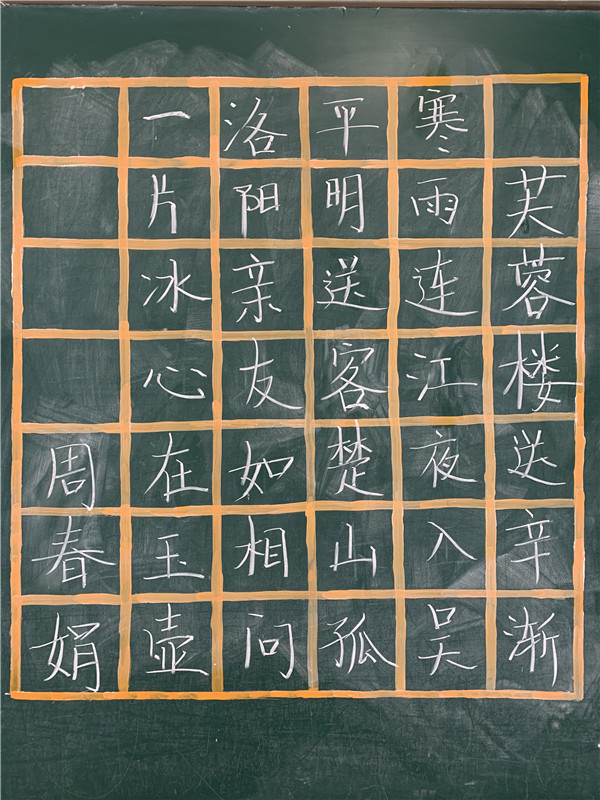 芙蓉楼送辛渐
寒雨连江夜入吴
平明送客楚山孤
洛阳亲友如相问
一片冰心在玉壶
周春娟